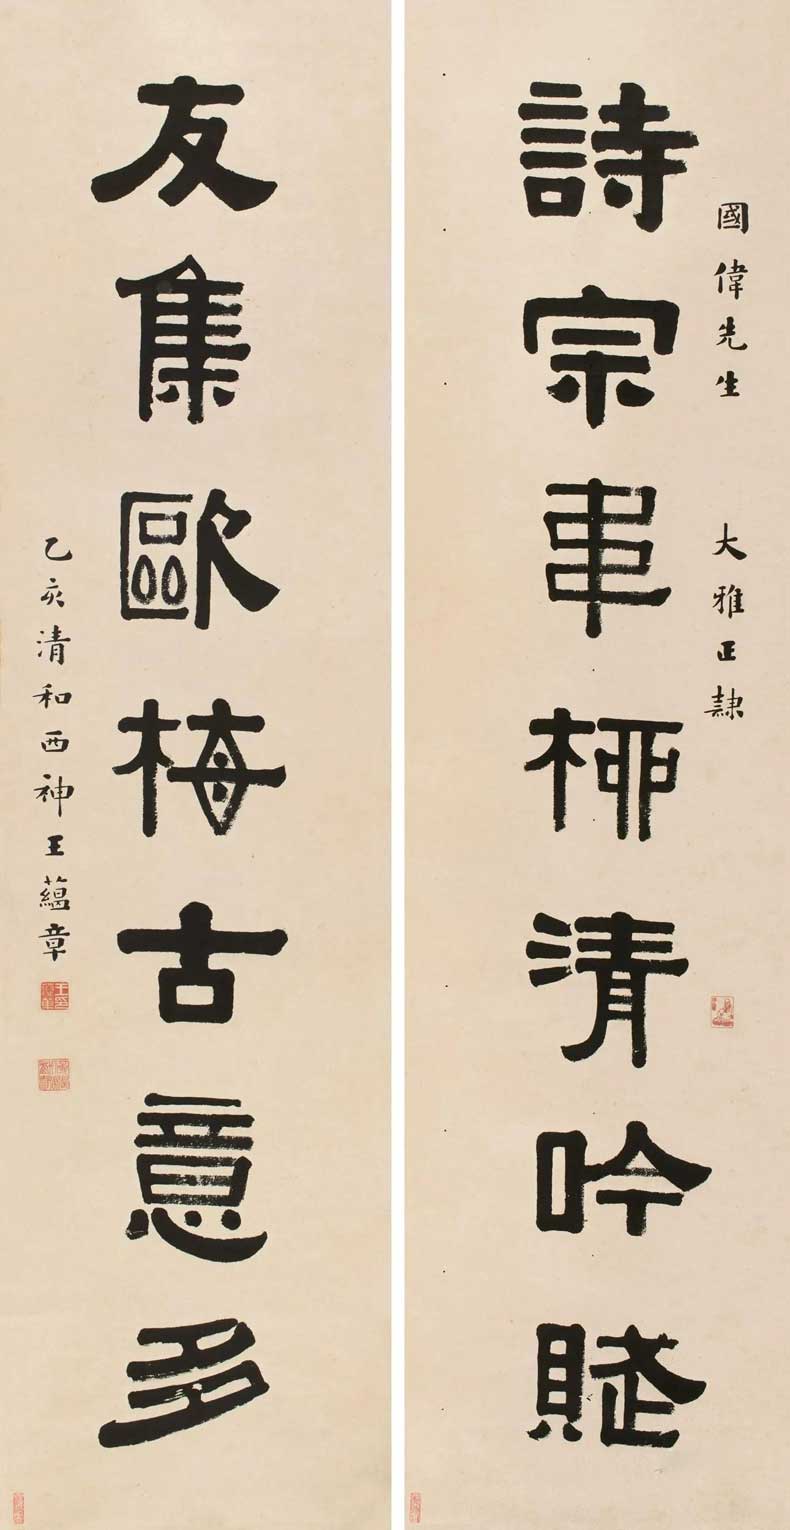 國偉先生　大雅正隸
詩宗韋柳清吟賦
友集歐梅古意多
乙亥清和西神王藴章